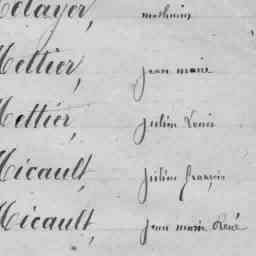 Metayer, mathurin
Mettier, jean marie
Mettier, julien Louis
Micault, julien françois
Micault, jean marie René